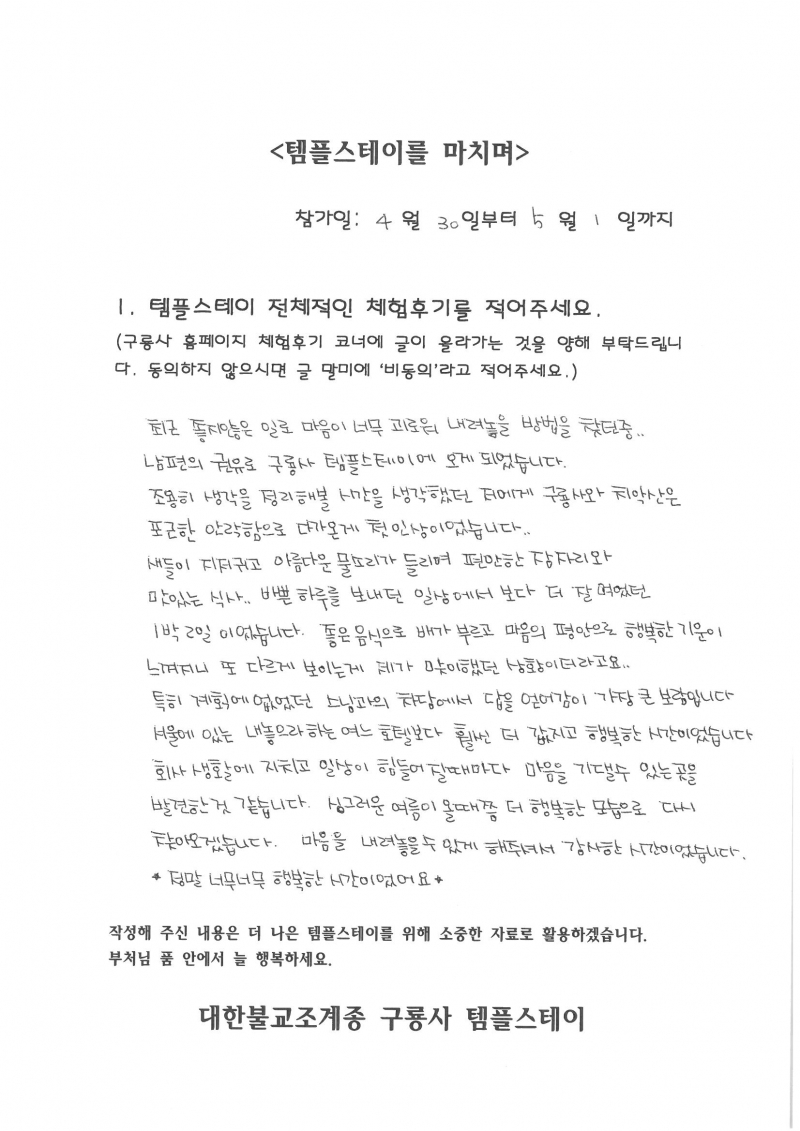 <템플스테이를 마치며>
참가일: 4 월 30일부터 5 월 1 일까지
1. 템플스테이 전체적인 체험후기를 적어주세요.
(구룡사 홈페이지 체험후기 코너에 글이 올라가는 것을 양해 부탁드립니
다. 동의하지 않으시면 글 말미에 '비동의'라고 적어주세요.)
최근 좋지않은 일로 마음이 너무 괴로워 내려놓을 방법을 찾던중..
남편의 권유로 구룡사 템플스테이에 오게 되었습니다.
조용히 생각을 정리해볼 시간을 생각했던 저에게 구룡사와 치악산은
포근한 안락함으로 다가온게 첫인상이었습니다..
새들이 지저귀고 아름다운 물소리가 들리며 편안한 잠자리와
맛있는 식사.. 바쁜 하루를 보내던 일상에서 보다 더 잘 먹었던
1박 2일 이었습니다. 좋은 음식으로 배가 부르고 마음의 평안으로 행복한 기운이
느껴지니 또 다르게 보이는게 제가 맞이했던 상황이더라고요..
특히 계획에 없었던 스님과의 차담에서 답을 얻어감이 가장 큰 보람입니다
서울에 있는 내놓으라하는 여느 호텔보다 훨씬 더 값지고 행복한 시간이었습니다
회사 생활에 지치고 일상이 힘들어 질때마다 마음을 기댈수 있는곳을
발견한것 같습니다. 싱그러운 여름이 올때쯤 더 행복한 모습으로 다시
찾아오겠습니다. 마음을 내려놓을수 있게 해주셔서 감사한 시간이었습니다.
* 정말 너무너무 행복한 시간이었어요 *
작성해 주신 내용은 더 나은 템플스테이를 위해 소중한 자료로 활용하겠습니다.
부처님 품 안에서 늘 행복하세요.
대한불교조계종 구룡사 템플스테이